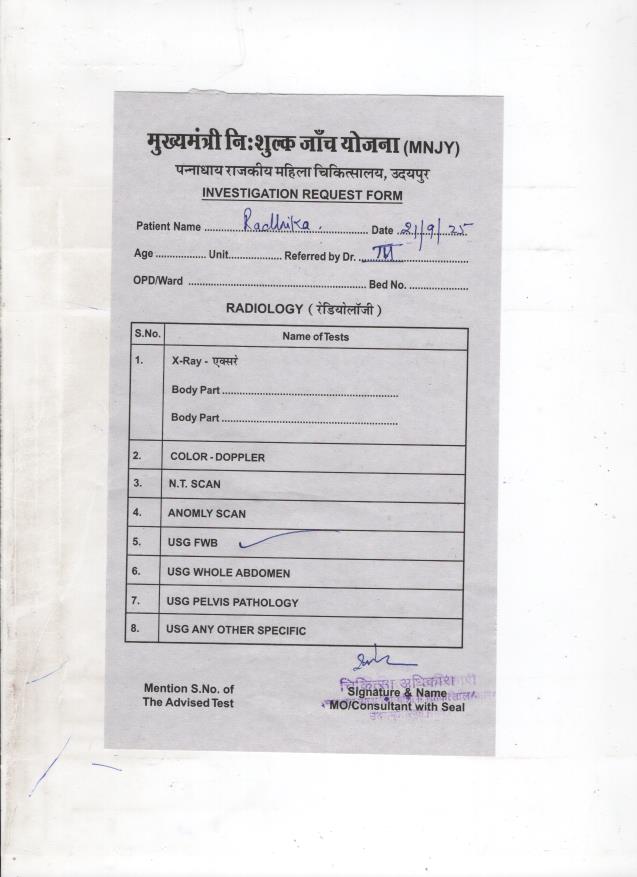 मुख्यमंत्री नि:शुल्क जाँच योजना (MNJY)
पन्नाधाय राजकीय महिला चिकित्सालय, उदयपुर
INVESTIGATION REQUEST FORM
Patient Name ........ Radhika ........ Date 21/9/25
Age ........ Unit ........ Referred by Dr. ........
OPD/Ward ........ Bed No. ........
RADIOLOGY ( रेडियोलॉजी )
S.No. Name of Tests
1. X-Ray - एक्सरे
Body Part ........
Body Part ........
2. COLOR - DOPPLER
3. N.T. SCAN
4. ANOMLY SCAN
5. USG FWB
6. USG WHOLE ABDOMEN
7. USG PELVIS PATHOLOGY
8. USG ANY OTHER SPECIFIC
Mention S.No. of
The Advised Test
चिकित्सा अधिकारी
Signature & Name
MO/Consultant with Seal